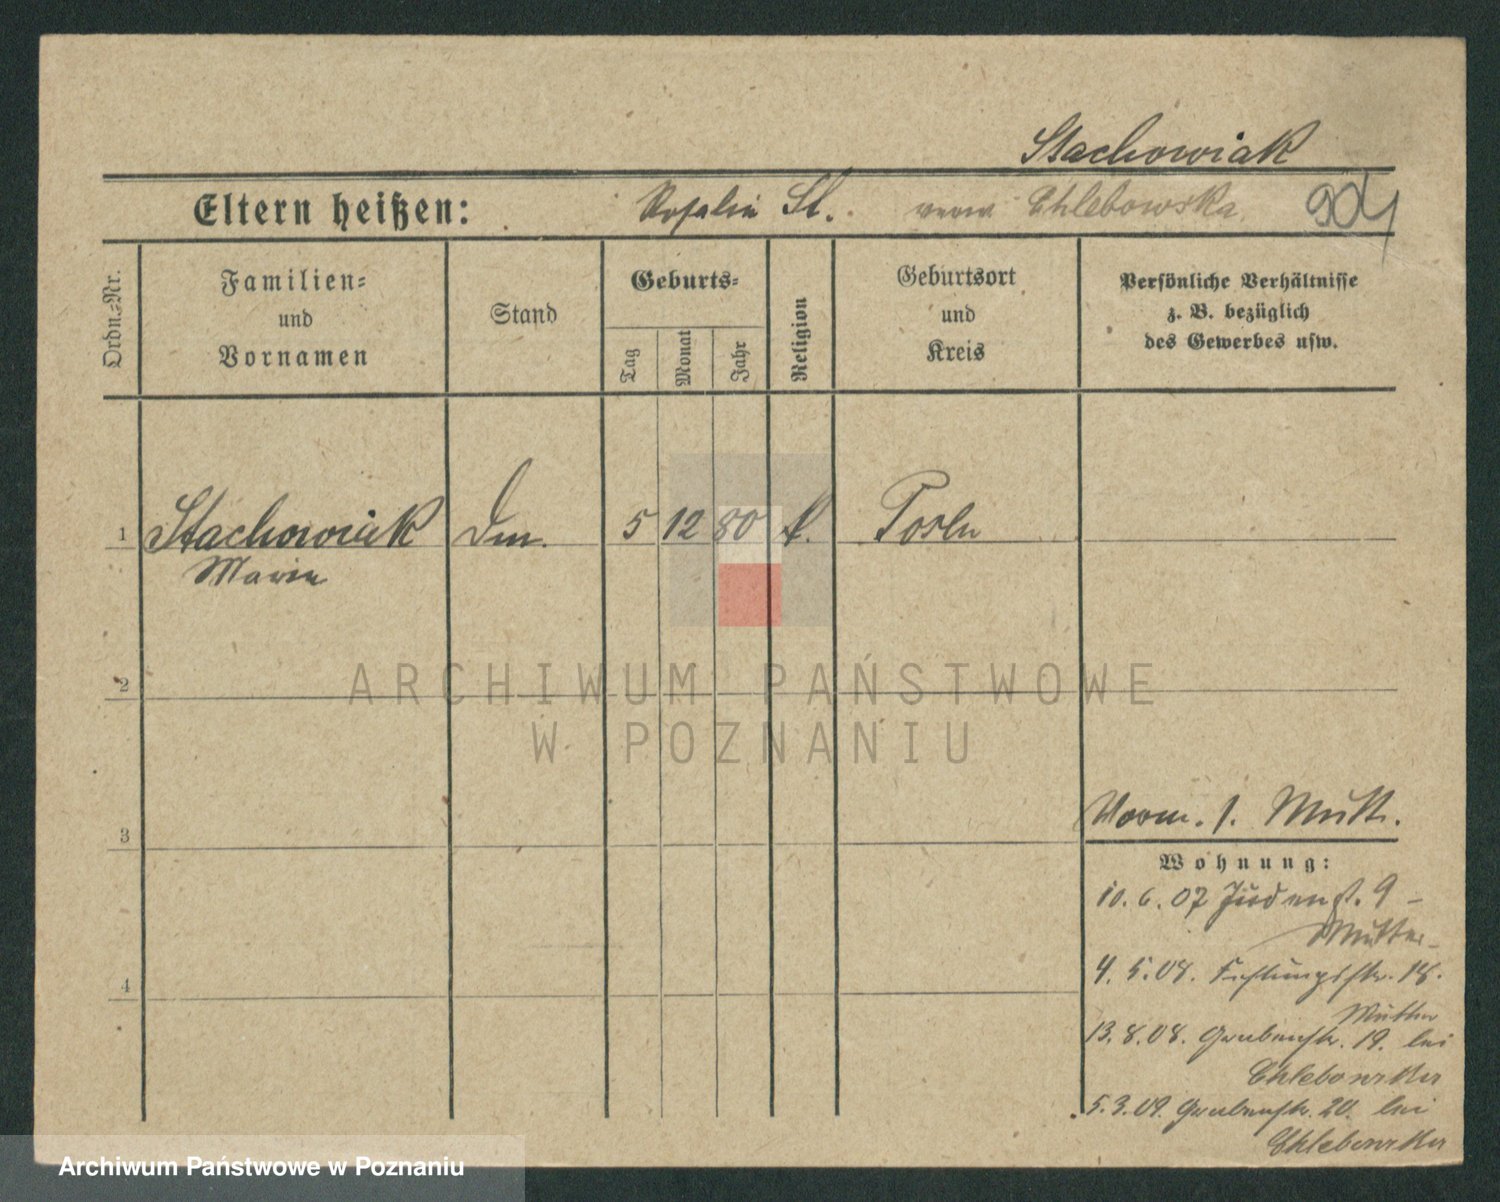 Stachowiak
Eltern heißen: Rosalie St. verw Chlebowska 904
Ordn.-Nr.
Familien-
und
Vornamen
Stand
Geburts-
Tag
Monat
Jahr
Religion
Geburtsort
und
Kreis
Persönliche Verhältnisse
z. B. bezüglich
des Gewerbes usw.
1 Stachowiak 5 12 80 k. Posen
Marie
2
3
4
Vorm. s. Mutt.
Wohnung:
10. 6. 07 Judenst. 9 -
Mutter
4. 5. 08. 18.
Mutter
13. 8. 08. Grabenstr. 19. bei
Chlebowska
5. 3. 09. Grabenstr. 20. bei
Chlebowska
ARCHIWUM PAŃSTWOWE
W POZNANIU
Archiwum Państwowe w Poznaniu